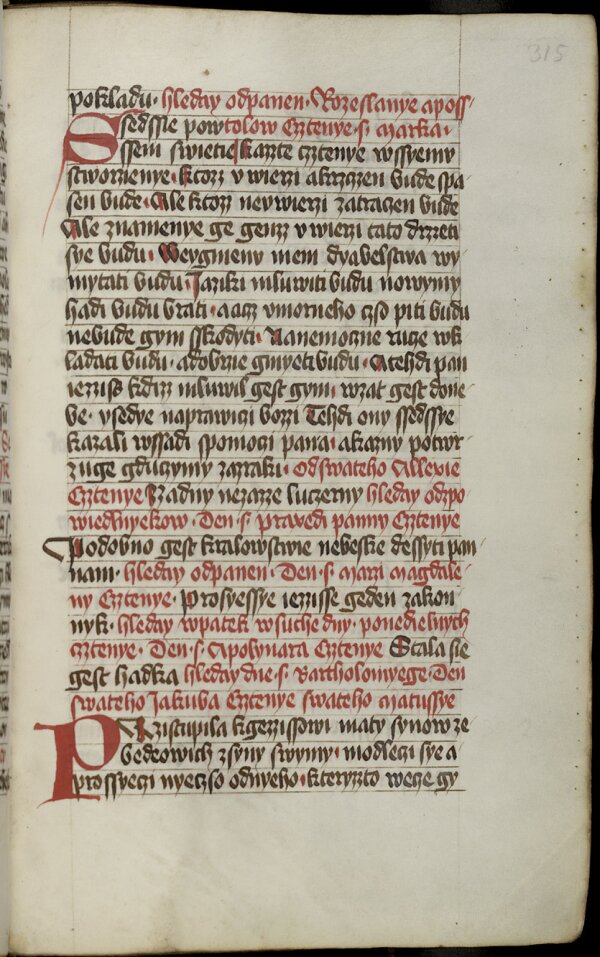 315
pokladu· hleday odpanen· Rozeslanye aposs-
Ssedssie powtolow Cztenye· s· marka·
ssem swietie kazte cztenye wssyemu
stworzenye· ktozz v wierzi akrzczen bude spa-
sen bude· Ale ktozz neywierzi zatraczen bude
Ale znamenye ge genzz v wierzi tato drzeti
sye budu· Weygmeny mem dyabelstwa wy-
mytati budu· Jaziki mluwiti budu nowymy
hadi budu brati· aacz vmorneho czso piti budu
nebude gym sskodyti· Nanemoczne rucze wk-
ladati budu· adobrze gmyeti budu· Atehdi pan
iezziss kdizz mluwil gest gym· wzat gest done-
be· ysedye naprawiczi bozzi Tehdi ony ssedssye
kazali wssadi spomoczi pana· akazny potwr-
zuge gduczymy zazraki· Odswateho Allexie
Cztenye Zadny nezazze luczerny hleday odzpo-
wiedlnyekow· Den· s· praxedi panny Cztenye
Podobno gest kralowstwie nebeske dessyti pan-
nam· hleday odpanen· Den· s· Marzi Magdale-
ny Cztenye· Prosyessye iezzisse geden zakon-
nyk· hleday wpatek wsuche dny· ponedielnych
cztenye· Den· s· Apolynara Cztenye Stala sie
gest hadka hleday dne· s· Bartholomyege· Den
swateho Jakuba Cztenye swateho Matussye
PRzistupila kgezzissowi maty synow ze-
bedeowich zsyny swymy· modleczi sye a
prossyeczi nyeczso odnyeho· kteryzto wecze gy